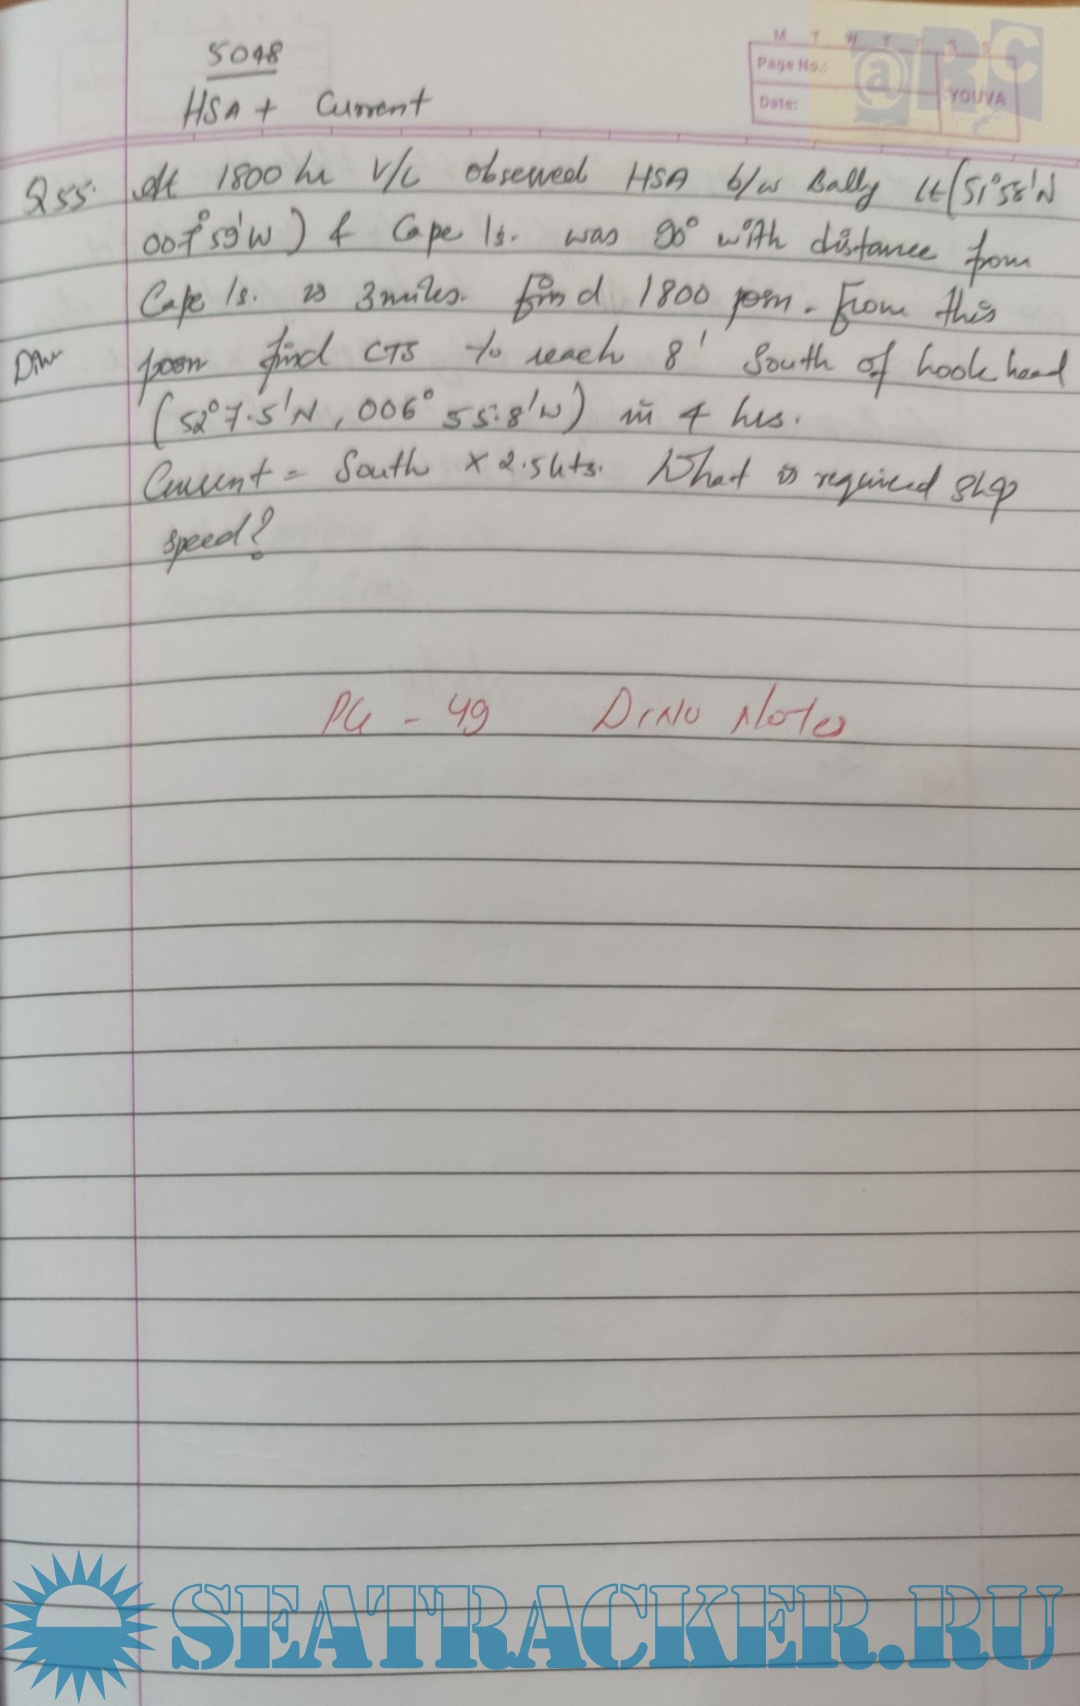 5048
HSA + Current
M T W T F S S
Page No.:
Date:
YOUVA
@RC
Q55. At 1800 hr V/L observed HSA b/w Bally Lt (51°58'N
007°59'W) & Cape Is. was 90° with distance from
Cape Is. is 3 miles. find 1800 posn. From this
Dinu posn find CTS to reach 8' South of hook head
(52°7.5'N, 006°55.8'W) in 4 hrs.
Current = South x 2.5kts. What is required ship
speed?
PG - 49 DINU Notes
SEATRACKER.RU